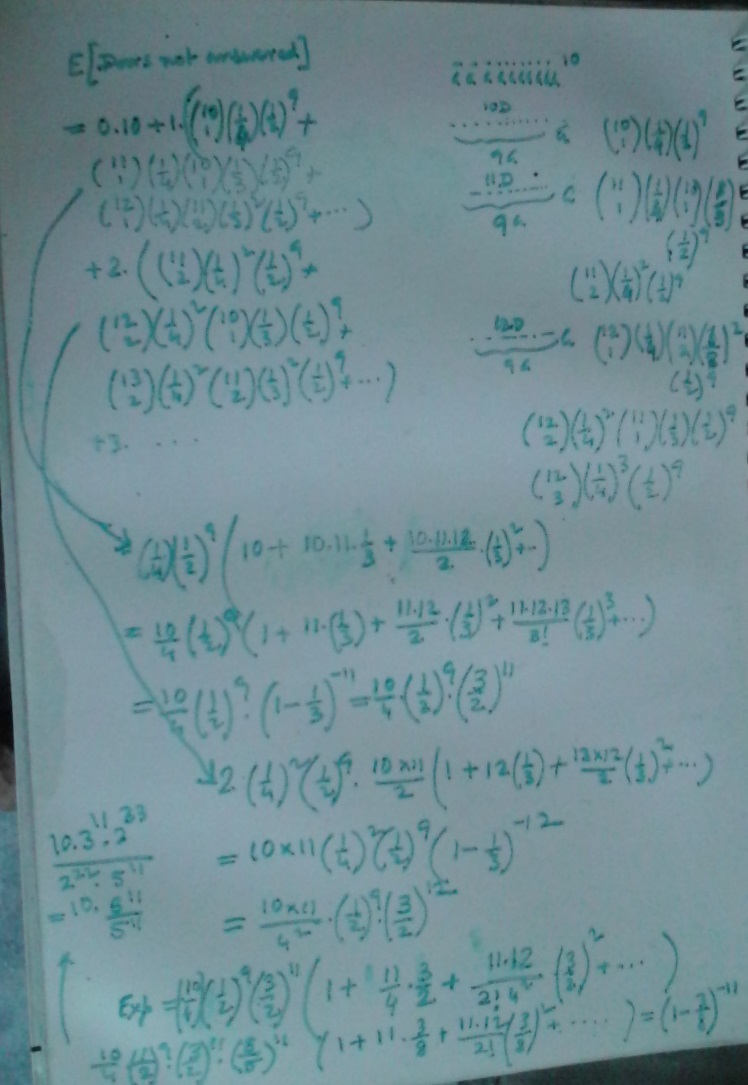 E[Doors not answered]
= 0.10 + 1.((10 1)(1/4)(1/2)^9 +
(11 1)(1/4)(10 1)(1/3)(1/2)^9 +
(12 1)(1/4)(11 2)(1/3)^2(1/2)^9 + ...)
+ 2.((11 2)(1/4)^2(1/2)^9 +
(12 2)(1/4)^2(10 1)(1/3)(1/2)^9 +
(13 2)(1/4)^2(11 2)(1/3)^2(1/2)^9 + ...)
+3. ....
10
10D
9G G (10 1)(1/4)(1/2)^9
11D
9G G (11 1)(1/4)(10 1)
(1/2)^9
(11 2)(1/4)^2(1/2)^9
12D
9G G (12 1)(1/4)(11 2)
(1/2)^9
(12 2)(1/4)^2(11 1)(1/3)(1/2)^9
(12 3)(1/4)^3(1/2)^9
(1/4)(1/2)^9 (10 + 10.11.1/3 + 10.11.12/2.(1/3)^2 + ..)
= 10/4(1/2)^9(1 + 11.(1/3) + 11.12/2.(1/3)^2 + 11.12.13/3!(1/3)^3 + ...)
= 10/4(1/2)^9.(1-1/3)^-11 = 10/4.(1/2)^9.(3/2)^11
2.(1/4)^2(1/2)^9.10×11/2(1 + 12(1/3) + 12×12/2(1/3)^2 + ...)
= 10×11(1/4)^2(1/2)^9(1-1/3)^-12
= 10×11/4^2.(1/2)^9.(3/2)^12
10.3^11.2^33/2^22.5^11
= 10.6^11/5^11
Exp = (10/4)(1/2)^9(3/2)^11(1 + 11/4.3/2 + 11.12/2!4^2(3/2)^2 + ...)
10/4(1/2)^9.(3/2)^11.(8/5)^11 (1 + 11.3/8 + 11.12/2!(3/8)^2 + .....) = (1-3/8)^-11